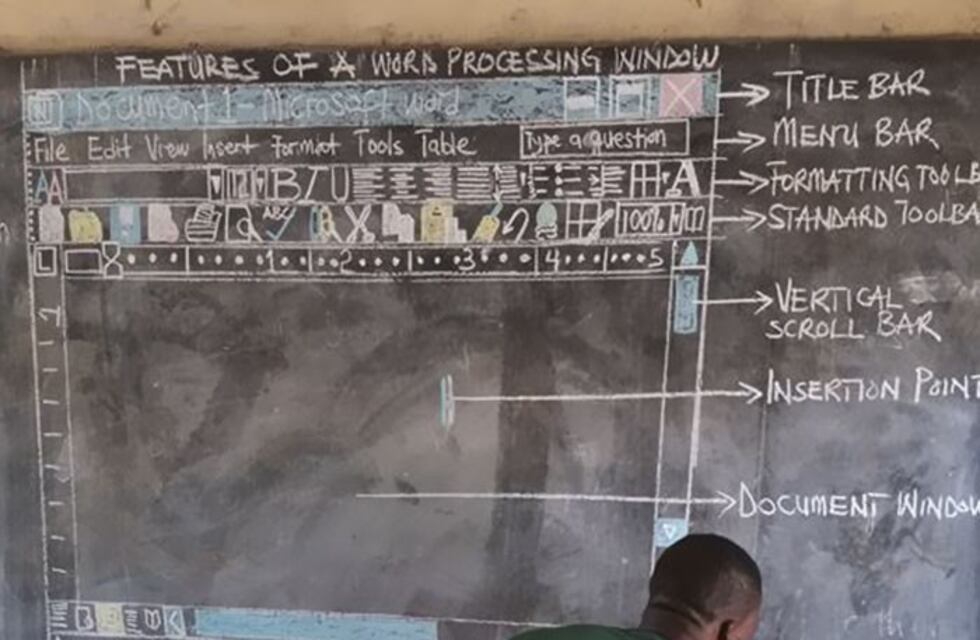 FEATURES OF A WORD PROCESSING WINDOW
W Document 1 - Microsoft word
TITLE BAR
File Edit View Insert Format Tools Table
Type a question
MENU BAR
AA
B I U
A
FORMATTING TOOLB
ABC
100%
STANDARD TOOLBA
L
1 2 3 4 5
1
VERTICAL
SCROLL BAR
INSERTION POINT
DOCUMENT WINDOW